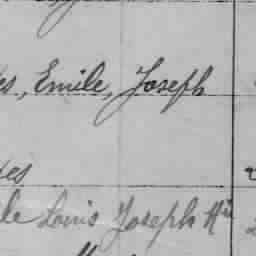 es, Emile, Joseph
es
le Louis Joseph